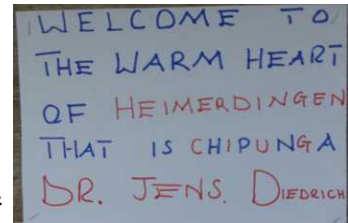 WELCOME TO
THE WARM HEART
OF HEIMERDINGEN
THAT IS CHIPUNGA
DR. JENS. DIEDRICH